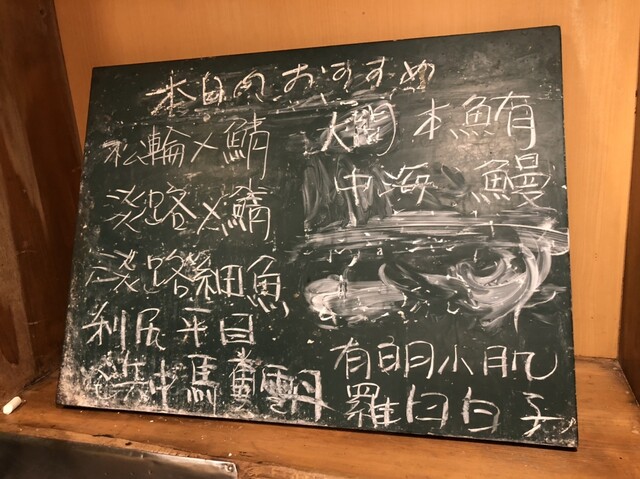 本日のおすすめ
松輪〆鯖
淡路〆鯖
淡路細魚
利尻平目
馬糞雲丹
大間 本鮪
中海 鰻
有明小肌
羅臼白子